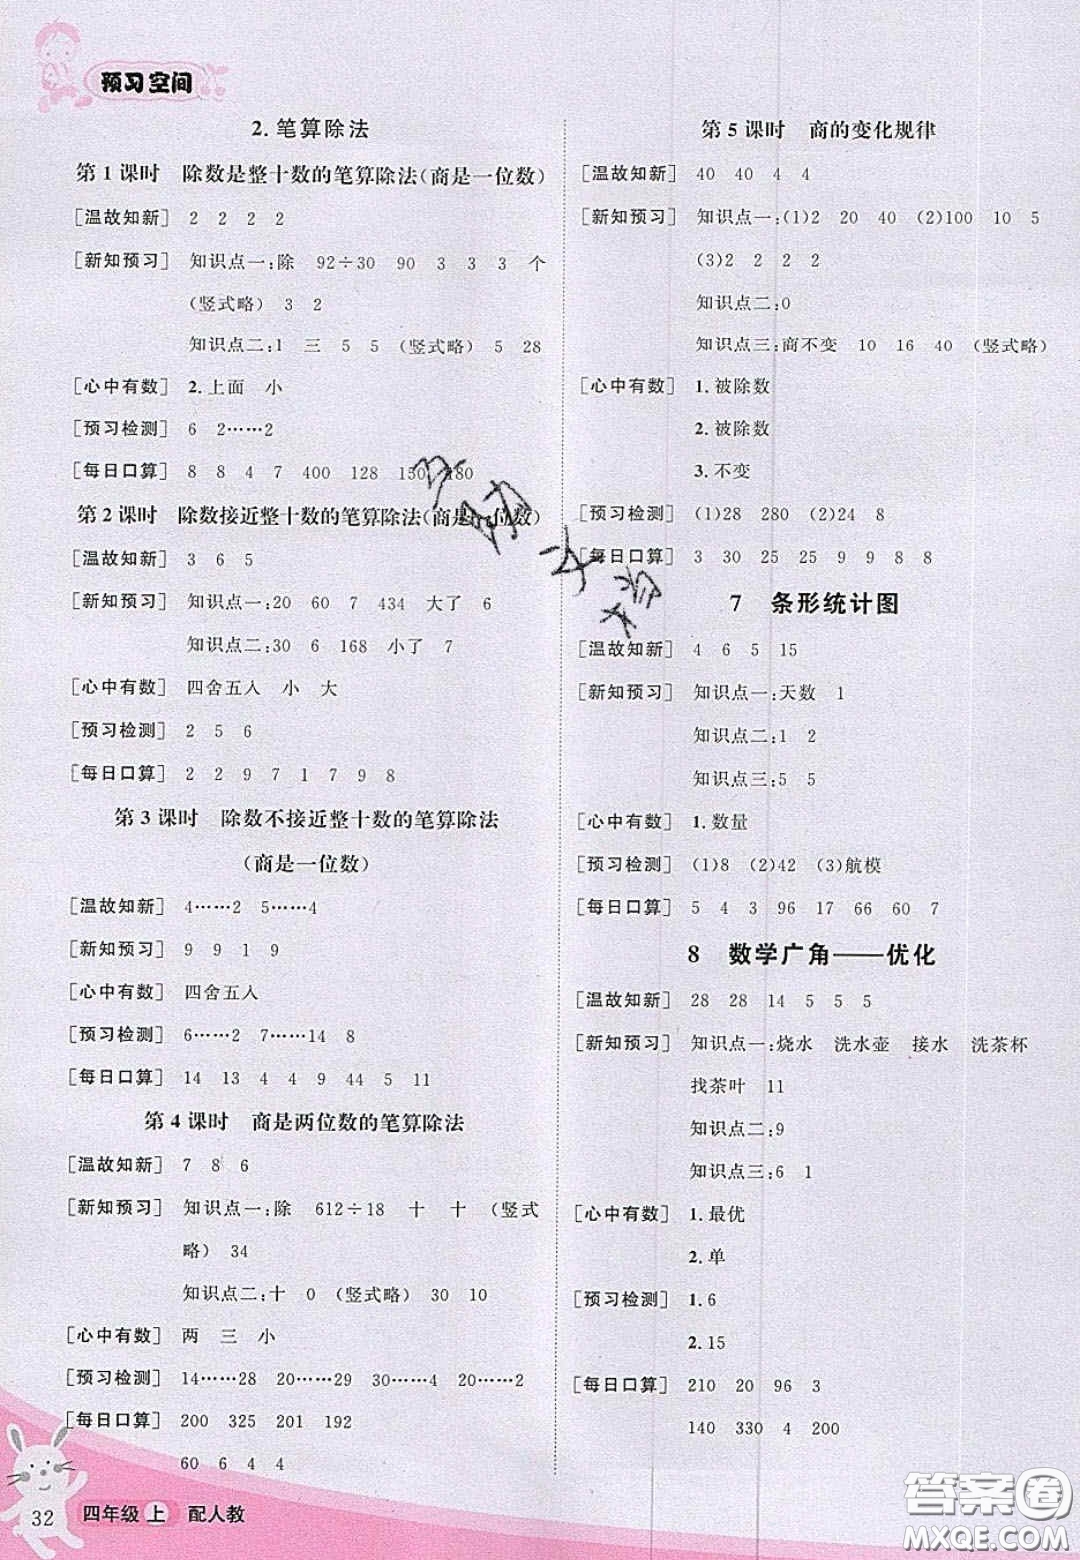 预习空间
2.笔算除法
第1课时 除数是整十数的笔算除法(商是一位数)
[温故知新] 2 2 2 2
[新知预习] 知识点一:除 92÷30 90 3 3 3 个
(竖式略) 3 2
知识点二:1 三 5 5 (竖式略) 5 28
[心中有数] 2.上面 小
[预习检测] 6 2……2
[每日口算] 8 8 4 7 400 128 150 180
第2课时 除数接近整十数的笔算除法(商是一位数)
[温故知新] 3 6 5
[新知预习] 知识点一:20 60 7 434 大了 6
知识点二:30 6 168 小了 7
[心中有数] 四舍五入 小 大
[预习检测] 2 5 6
[每日口算] 2 2 9 7 1 7 9 8
第3课时 除数不接近整十数的笔算除法
(商是一位数)
[温故知新] 4……2 5……4
[新知预习] 9 9 1 9
[心中有数] 四舍五入
[预习检测] 6……2 7……14 8
[每日口算] 14 13 4 4 44 5 11
第4课时 商是两位数的笔算除法
[温故知新] 7 8 6
[新知预习] 知识点一:除 612÷18 十 十 (竖式
略) 34
知识点二:十 0 (竖式略) 30 10
[心中有数] 两 三 小
[预习检测] 14……28 20……29 30……4 20……2
[每日口算] 200 325 201 192
60 6 4 4
第5课时 商的变化规律
[温故知新] 40 40 4 4
[新知预习] 知识点一:(1)2 20 40 (2)100 10 5
(3)2 2 2 2
知识点二:0
知识点三:商不变 10 16 40 (竖式略)
[心中有数] 1.被除数
2.被除数
3.不变
[预习检测] (1)28 280 (2)24 8
[每日口算] 3 30 25 25 9 9 8 8
7 条形统计图
[温故知新] 4 6 5 15
[新知预习] 知识点一:天数 1
知识点二:1 2
知识点三:5 5
[心中有数] 1.数量
[预习检测] (1)8 (2)42 (3)航模
[每日口算] 5 4 3 96 17 66 60 7
8 数学广角——优化
[温故知新] 28 28 14 5 5 5
[新知预习] 知识点一:烧水 洗水壶 接水 洗茶杯
找茶叶 11
知识点二:9
知识点三:6 1
[心中有数] 1.最优
2.单
[预习检测] 1.6
2.15
[每日口算] 210 20 96 3
140 330 4 200
32 四年级 上 配人教
答案圈
MXQE.COM